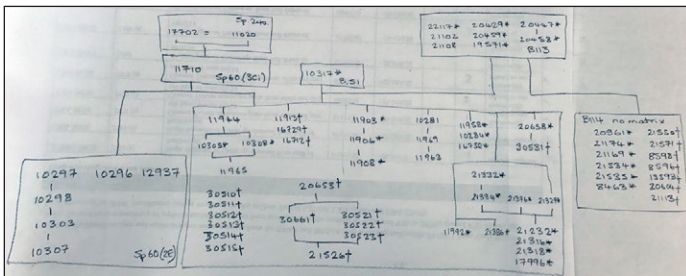 Sp 24a
17702 = 11020
11710
Sp60(3Ci)
10317*
B,51
22117* 20429* 20447*
21102 20459* 20458*
21108 19571* B113
11964
10305* 10308*
11965
11913†
16729†
16712†
11903*
11906*
11908*
10281
11969
11963
11958*
10284*
16738*
20658*
20531†
B114 no matrix
20961* 21550†
21174* 21571†
21169* 8598†
21534* 8596†
21535* 13593†
8463* 20604†
21113†
10297 10296 12937
10298
10303
10307
Sp60(2E)
30510†
30511†
30512†
30513†
30514†
30515†
20653†
30661†
30521†
30522†
30523†
21526†
21332*
21334*
11972* 21386†
21232*
21316*
21318*
17996*